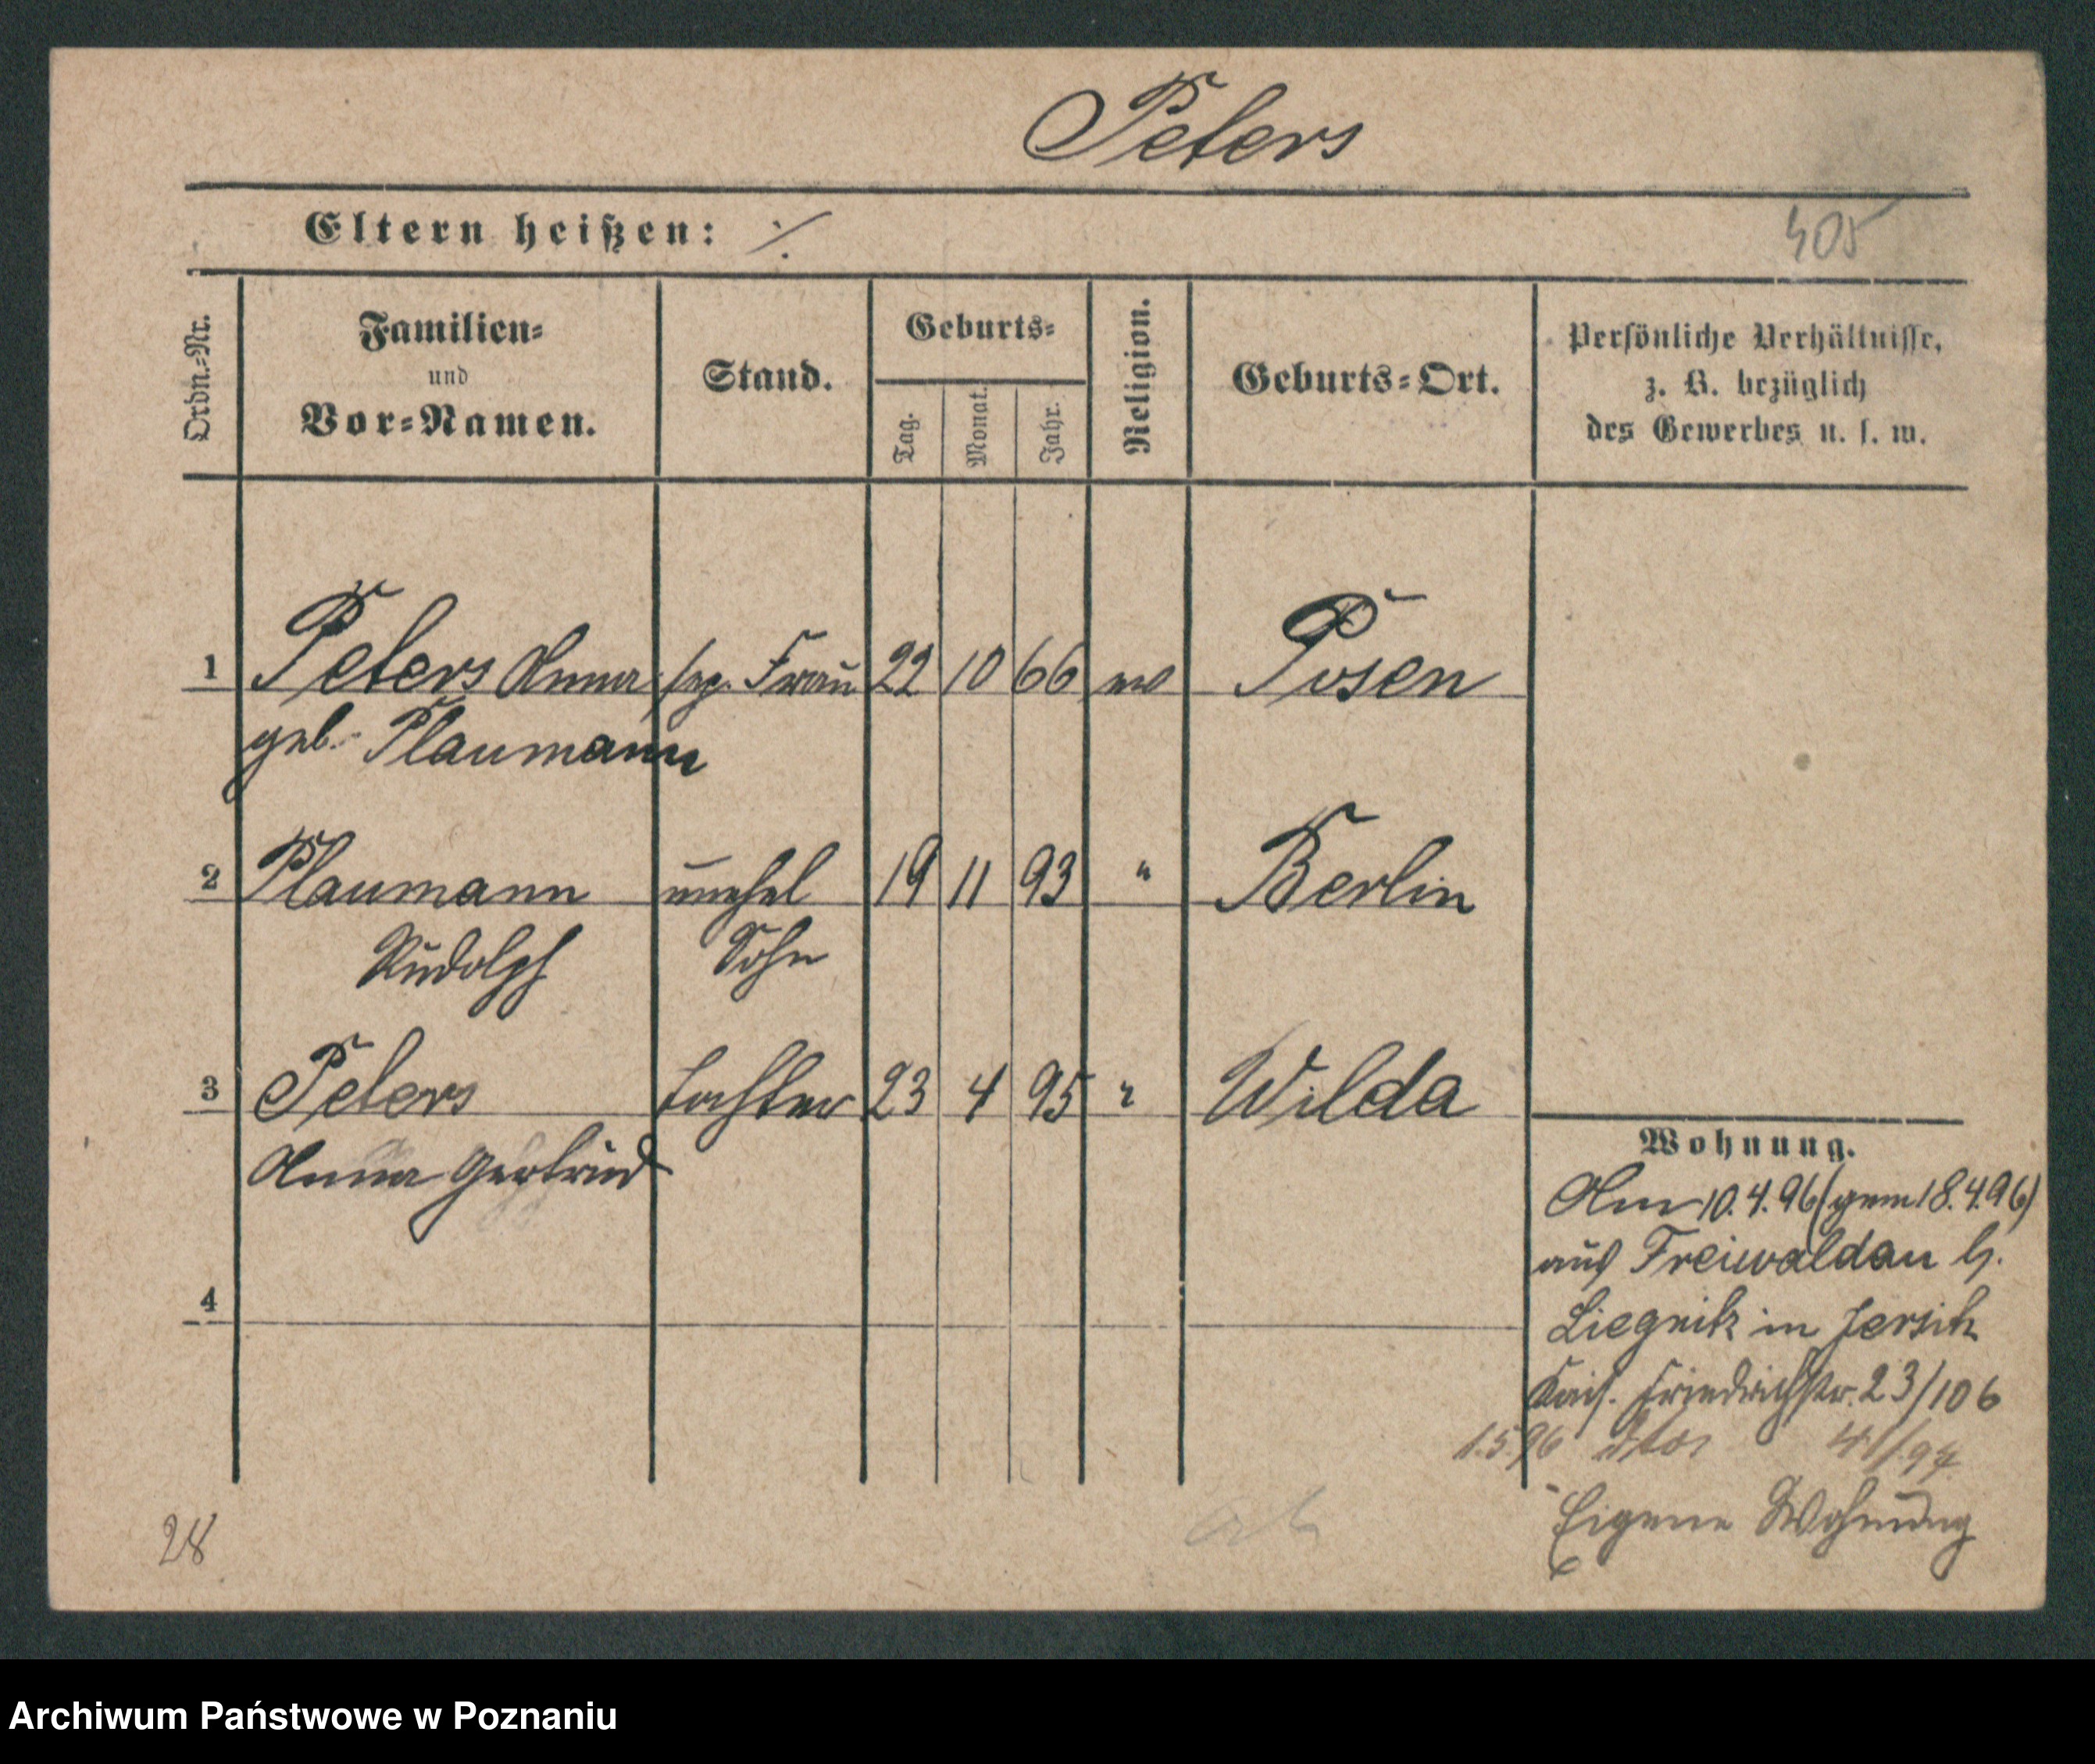 Peters
Eltern heißen: ⁒
405
Ordn.-Nr.
Familien-
und
Vor-Namen.
Stand.
Geburts-
Tag.
Monat.
Jahr.
Religion.
Geburts-Ort.
Persönliche Verhältnisse,
z. B. bezüglich
des Gewerbes u. s. w.
1 Peters Anna sep. Frau 22 10 66 ev Posen
geb. Plaumann
2 Plaumann unehel 19 11 93 " Berlin
Rudolph Sohn
3 Peters Tochter 23 4 95 " Wilda
Anna Gertrud
4
Wohnung.
Am 10.4.96 (gem 18.4.96)
aus Freiwaldau b.
Liegnitz in Jersitz
Kais. Friedrichstr. 23/106
1.5.96 dto
Eigene Wohnung
28
ab
Archiwum Państwowe w Poznaniu